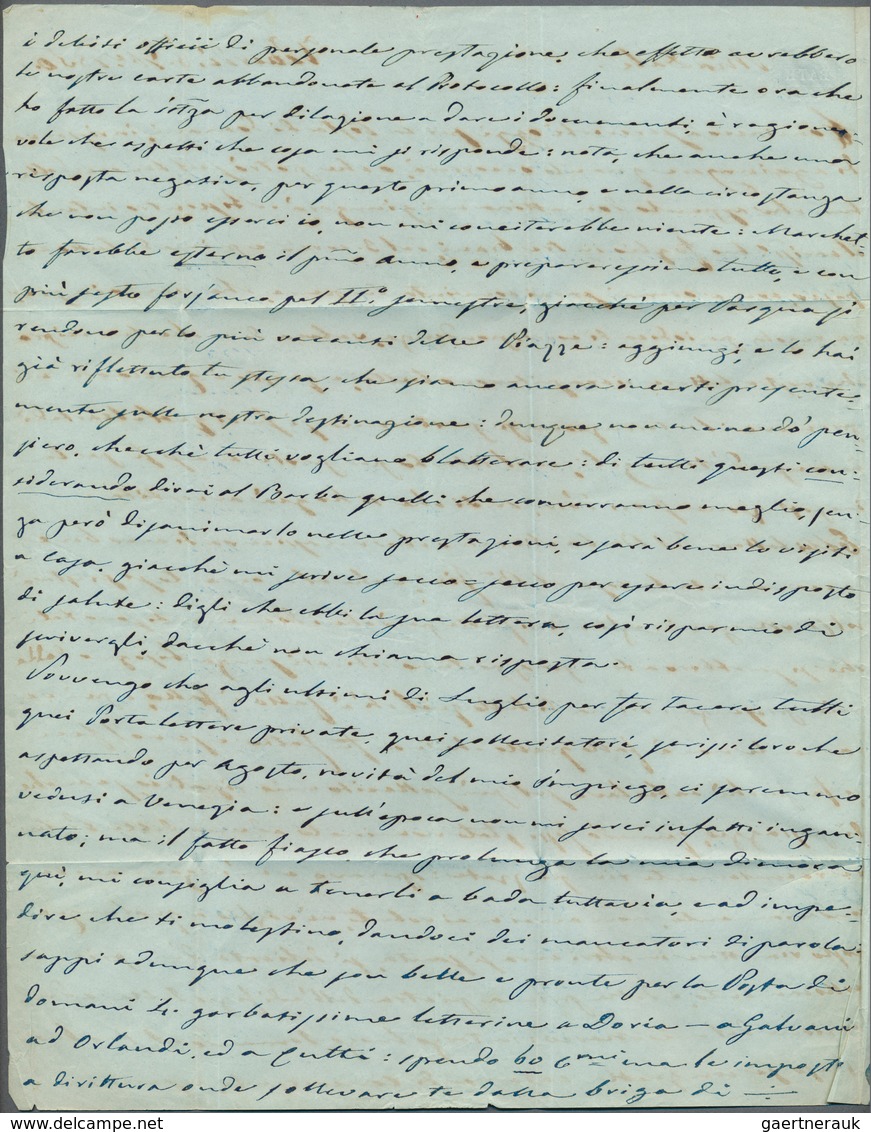 i debiti officii di personale prestazione, che effetto avrebbero
le nostre carte abbandonate al Protocollo: finalmente ora che
ho fatto la istza per dilazione a darci documenti, è ragione-
vole che aspetti che cosa mi si risponde: nota, che anche una
risposta negativa, per questo primo anno, e nella circostanza
che non posso esserci io, non mi conciterebbe niente: Marchet-
to farebbe esterno il pmo anno, e prepareressimo tutto, e con
più sesto fors'anco pel II.° semestre, giacchè per Pasqua si
rendono per lo più vacanti delle Piazze: aggiungi, e lo hai
già riflettuto tu stessa, che siamo ancora incerti presente-
mente sulla nostra destinazione: dunque non me ne dò pen-
siero, checchè tutti vogliano blatterare: di tutti questi con-
siderando dirai al Barba quelli che converranno meglio, sen-
za però disanimarlo nelle prestazioni, e sarà bene lo visiti
a casa, giacchè mi scrive secco = secco per essere indisposto
di salute: digli che ebbi la sua lettera, così risparmio di
scrivergli, dacchè non chiama risposta.
Sovvengo che agli ultimi di Luglio per far tacere tutti
quei Porta lettere private, quei sollecitatori, scrissi loro che
aspettando per Agosto, novità del mio Impiego, ci saremmo
veduti a Venezia: e sull'epoca non mi sarei infatti ingan-
nato; ma il fatto fiasco, che prolunga la mia dimora
quì, mi consiglia a tenerli a bada tuttavia, e ad impe-
dire che ti molestino, dandoci dei mancatori di parola:
sappi adunque che son belle e pronte per la Posta di
domani 4. garbatissime letterine a Doria — a Galvani
ad Orlandi, ed a Cutti: spendo 60 cmi ma le imposto
a dirittura onde sollevare te dalla briga di —
gaertnerauk